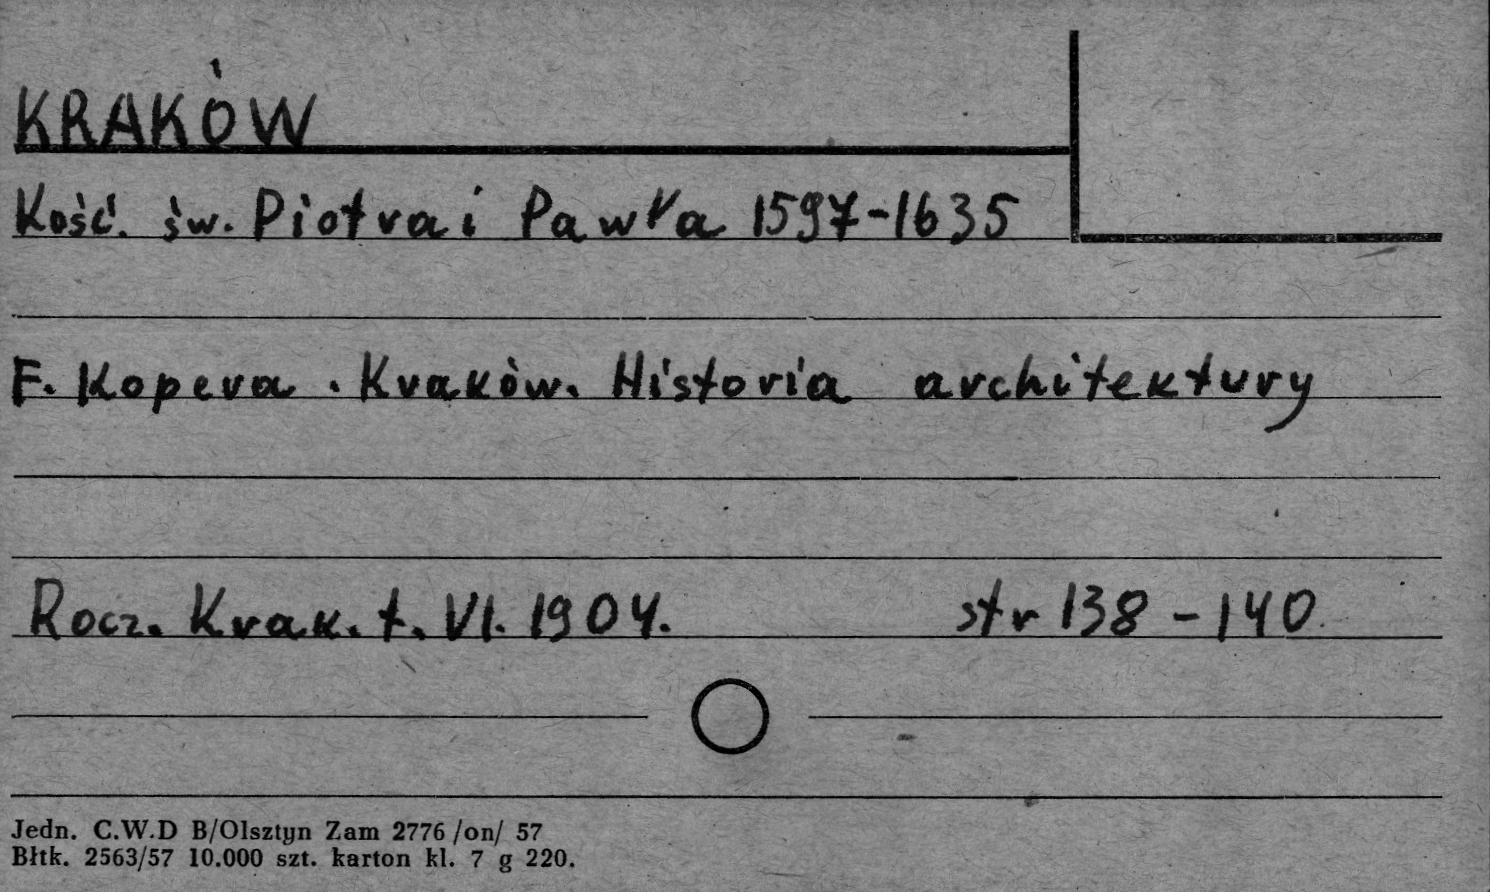 KRAKÓW
Kość. św. Piotra i Pawła 1597-1635
F. Kopera. Kraków. Historia architektury
Rocz. Krak. t. VI. 1904. str 138-140
Jedn. C.W.D B/Olsztyn Zam 2776 /on/ 57
Błtk. 2563/57 10.000 szt. karton kl. 7 g 220.